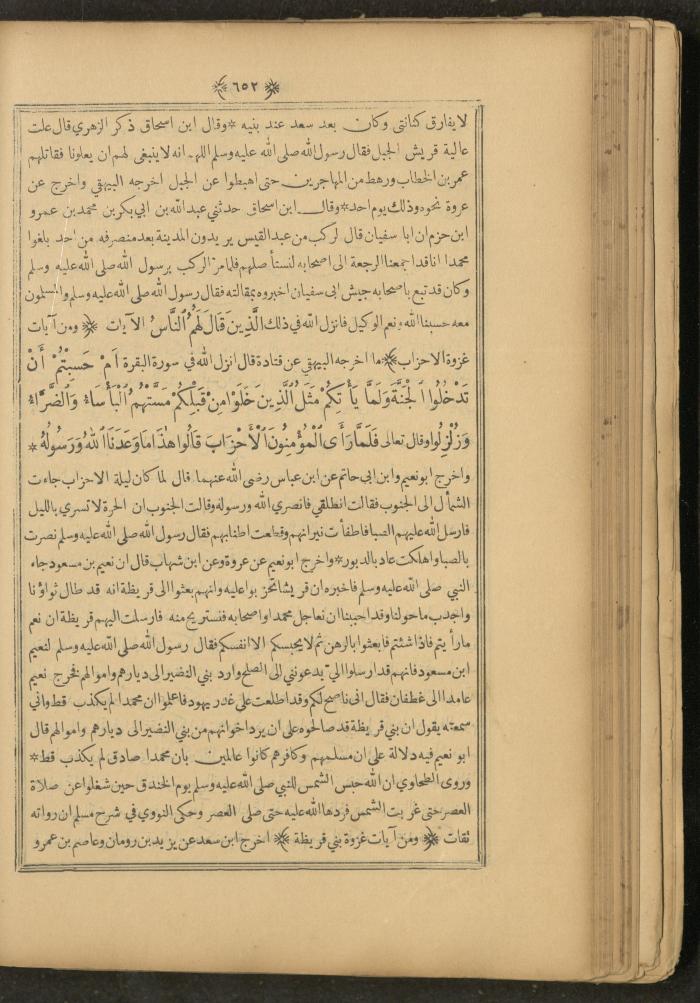 ٦٥٢
لا يفارق كنانتى وكان بعد سعد عند بنيه * وقال ابن اسحاق ذكر الزهري قال علت
عالية قريش الجبل فقال رسول الله صلى الله عليه وسلم اللهم انه لا ينبغى لهم ان يعلونا فقاتلهم
عمر بن الخطاب ورهط من المهاجرين حتى اهبطوا عن الجبل اخرجه البيهقي واخرج عن
عروة نحوه وذلك يوم احد * وقال ابن اسحاق حدثني عبد الله بن ابي بكر بن محمد بن عمرو
ابن حزم ان ابا سفيان قال لركب من عبد القيس يريدون المدينة بعد منصرفه من احد بلغوا
محمدا انا قد اجمعنا الرجعة الى اصحابه لنستأصلهم فلما مر الركب برسول الله صلى الله عليه وسلم
وكان قد تبع باصحابه جيش ابى سفيان اخبروه بمقالته فقال رسول الله صلى الله عليه وسلم والمسلمون
معه حسبنا الله ونعم الوكيل فانزل الله في ذلك اَلَّذِينَ قَالَ لَهُمُ ٱلنَّاسُ الآيات ﴿ ومن آيات
غزوة الاحزاب ﴾ ما اخرجه البيهقي عن قتادة قال انزل الله في سورة البقرة اَمْ حَسِبْتُمْ أَنْ
تَدْخُلُوا ٱلْجَنَّةَ وَلَمَّا يَأْتِكُمْ مَثَلُ ٱلَّذِينَ خَلَوْا مِنْ قَبْلِكُمْ مَسَّتْهُمُ ٱلْبَأْسَاءُ وَٱلضَّرَّاءُ
وَزُلْزِلُوا وقال تعالى فَلَمَّا رَأَى ٱلْمُؤْمِنُونَ ٱلْأَحْزَابَ قَالُوا هٰذَا مَا وَعَدَنَا ٱللهُ وَرَسُولُهُ *
واخرج ابو نعيم وابن ابى حاتم عن ابن عباس رضى الله عنهما قال لما كان ليلة الاحزاب جاءت
الشمأل الى الجنوب فقالت انطلقي فانصري الله ورسوله وقالت الجنوب ان الحرة لا تسري بالليل
فارسل الله عليهم الصبا فاطفأت نيرانهم وقطعت اطنابهم فقال رسول الله صلى الله عليه وسلم نصرت
بالصبا واهلكت عاد بالدبور * واخرج ابو نعيم عن عروة وعن ابن شهاب قال ان نعيم بن مسعود جاء
النبي صلى الله عليه وسلم فاخبره ان قريشا تحزبوا عليه وانهم بعثوا الى قريظة انه قد طال ثواؤنا
واجدب ما حولنا وقد احببنا ان نعاجل محمدا واصحابه فنستريح منه فارسلت اليهم قريظة ان نعم
ما رأيتم فاذا شئتم فابعثوا بالرهن ثم لا يحبسكم الا انفسكم فقال رسول الله صلى الله عليه وسلم لنعيم
ابن مسعود فانهم قد ارسلوا اليّ يدعونني الى الصلح وارد بني النضير الى ديارهم واموالهم فخرج نعيم
عامدا الى غطفان فقال انى ناصح لكم وقد اطلعت على غدر يهود فاعلموا ان محمدا لم يكذب قط واني
سمعته يقول ان بني قريظة قد صالحوه على ان يرد اخوانهم من بني النضير الى ديارهم واموالهم قال
ابو نعيم فيه دلالة على ان مسلمهم وكافرهم كانوا عالمين بان محمدا صادق لم يكذب قط *
وروى الطحاوي ان الله حبس الشمس للنبي صلى الله عليه وسلم يوم الخندق حين شغلوا عن صلاة
العصر حتى غربت الشمس فردها الله عليه حتى صلى العصر وحكى النووي في شرح مسلم ان رواته
ثقات ﴿ ومن آيات غزوة بني قريظة ﴾ اخرج ابن سعد عن يزيد بن رومان وعاصم بن عمرو